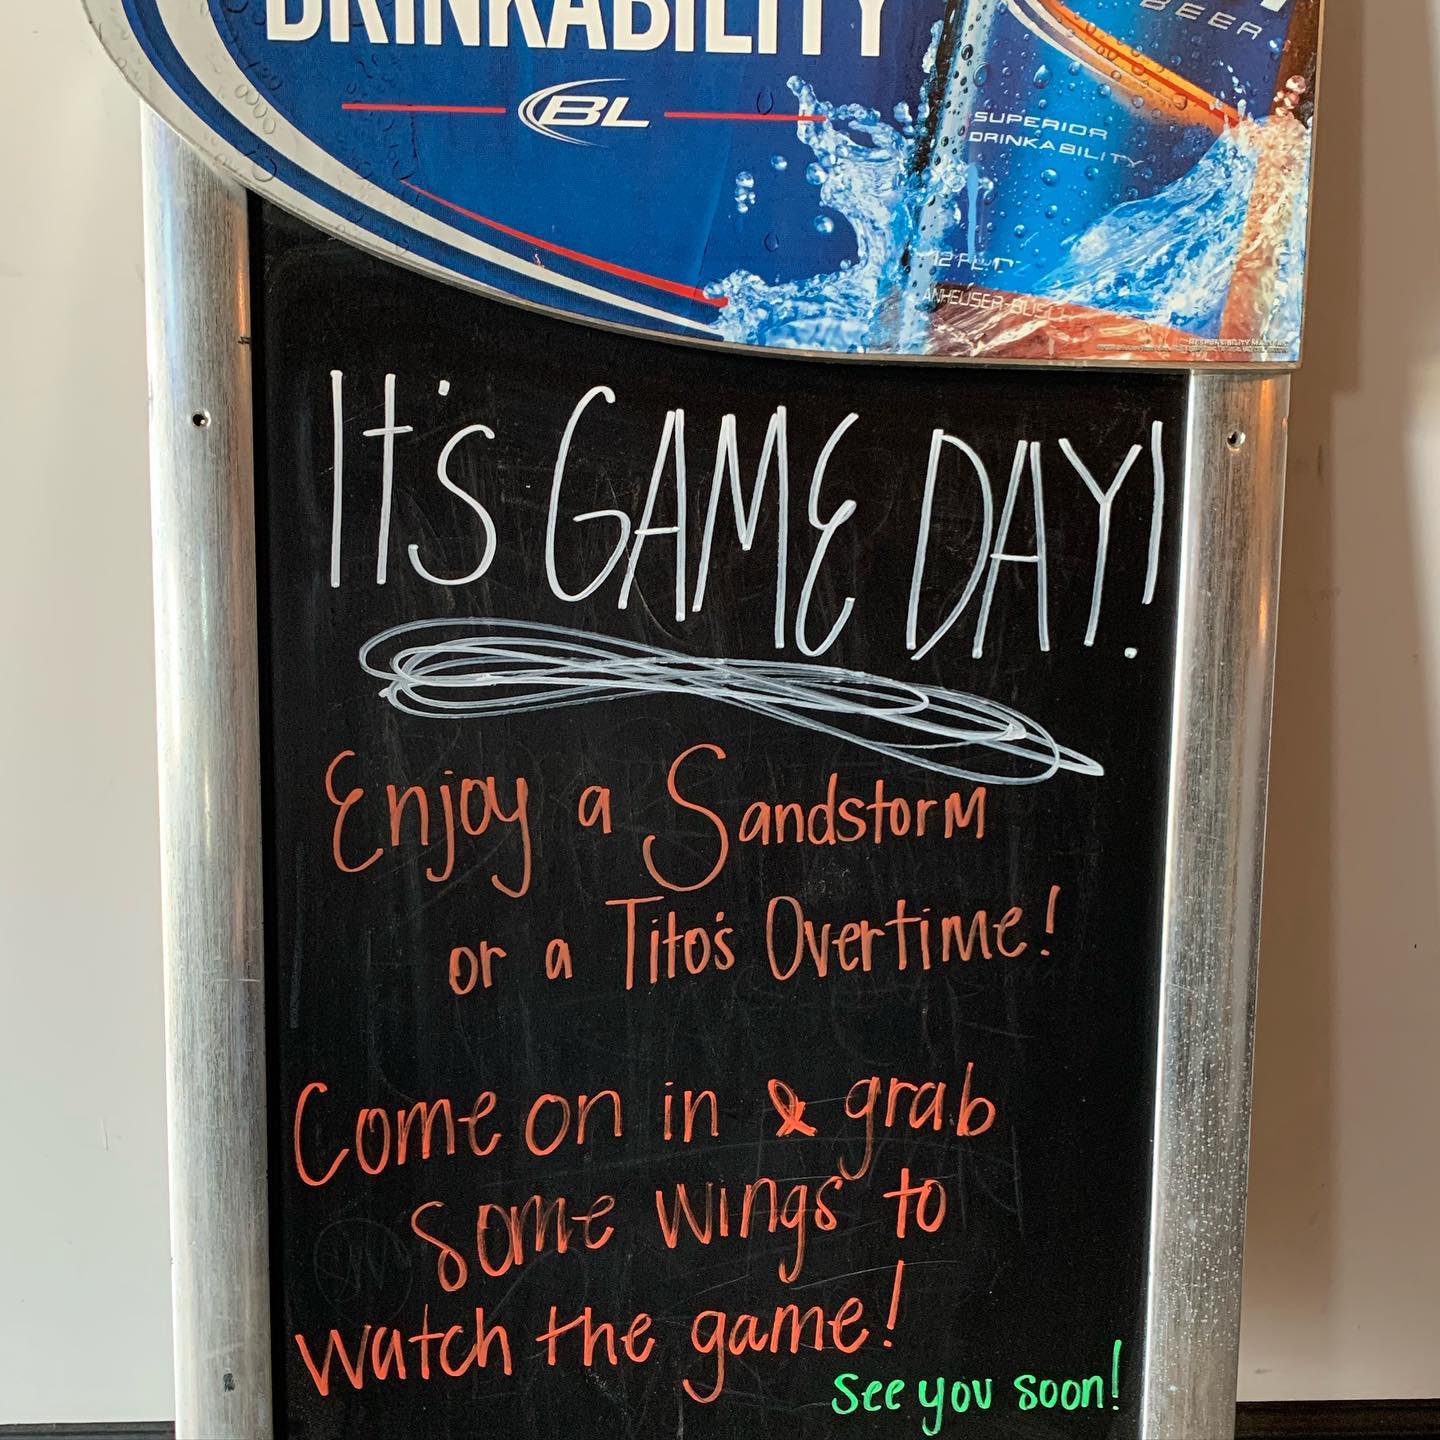 DRINKABILITY
BEER
BL
SUPERIOR
DRINKABILITY
12 FL
ANHEUSER-BUSCH
RESPONSIBILITY MATTERS
It's GAME DAY!
Enjoy a Sandstorm
or a Tito's Overtime!
Come on in & grab
some wings to
watch the game!
see you soon!